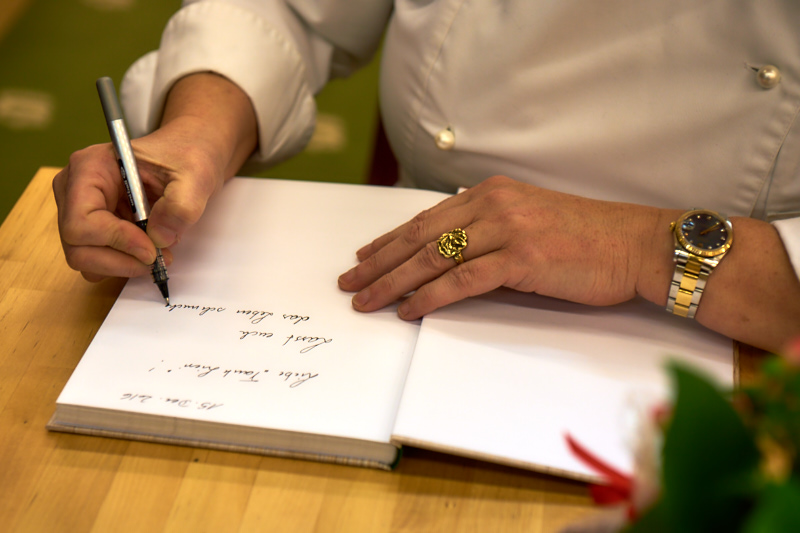 15. Dez. 2016
Liebe
Lasst euch
das Leben schmeck